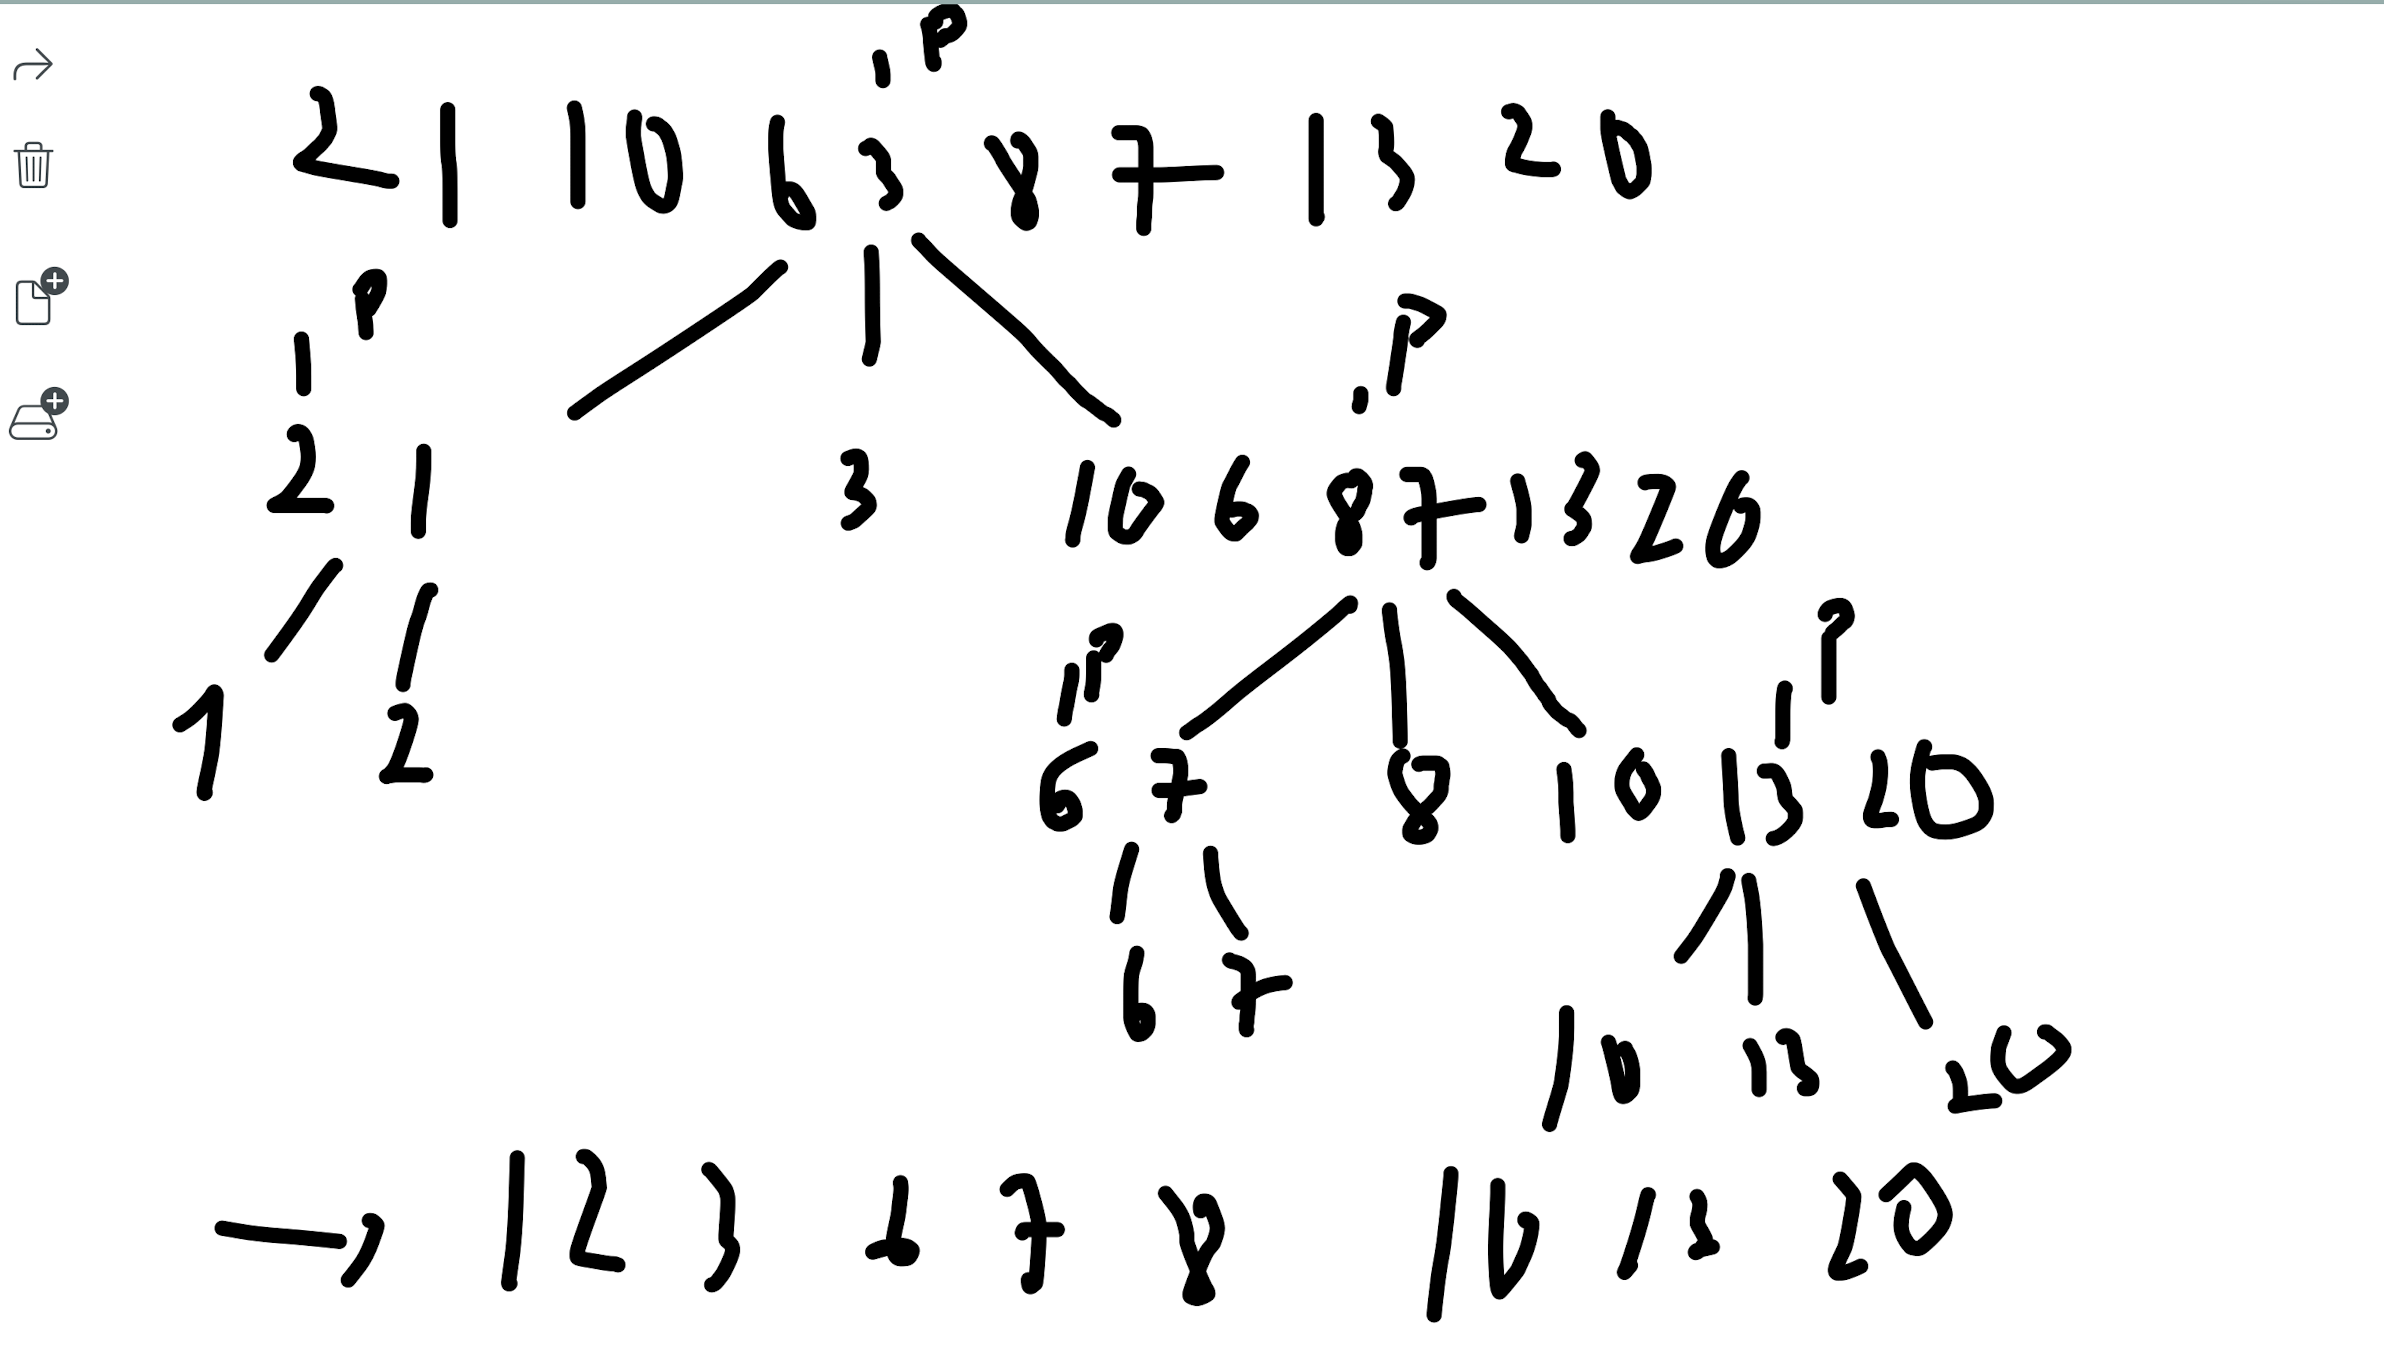 P
2 1 10 6 3 8 7 13 20
P P
2 1 3 10 6 8 7 13 20
P P
1 2 6 7 8 10 13 20
6 7 10 13 20
→ 1 2 3 6 7 8 10 13 20